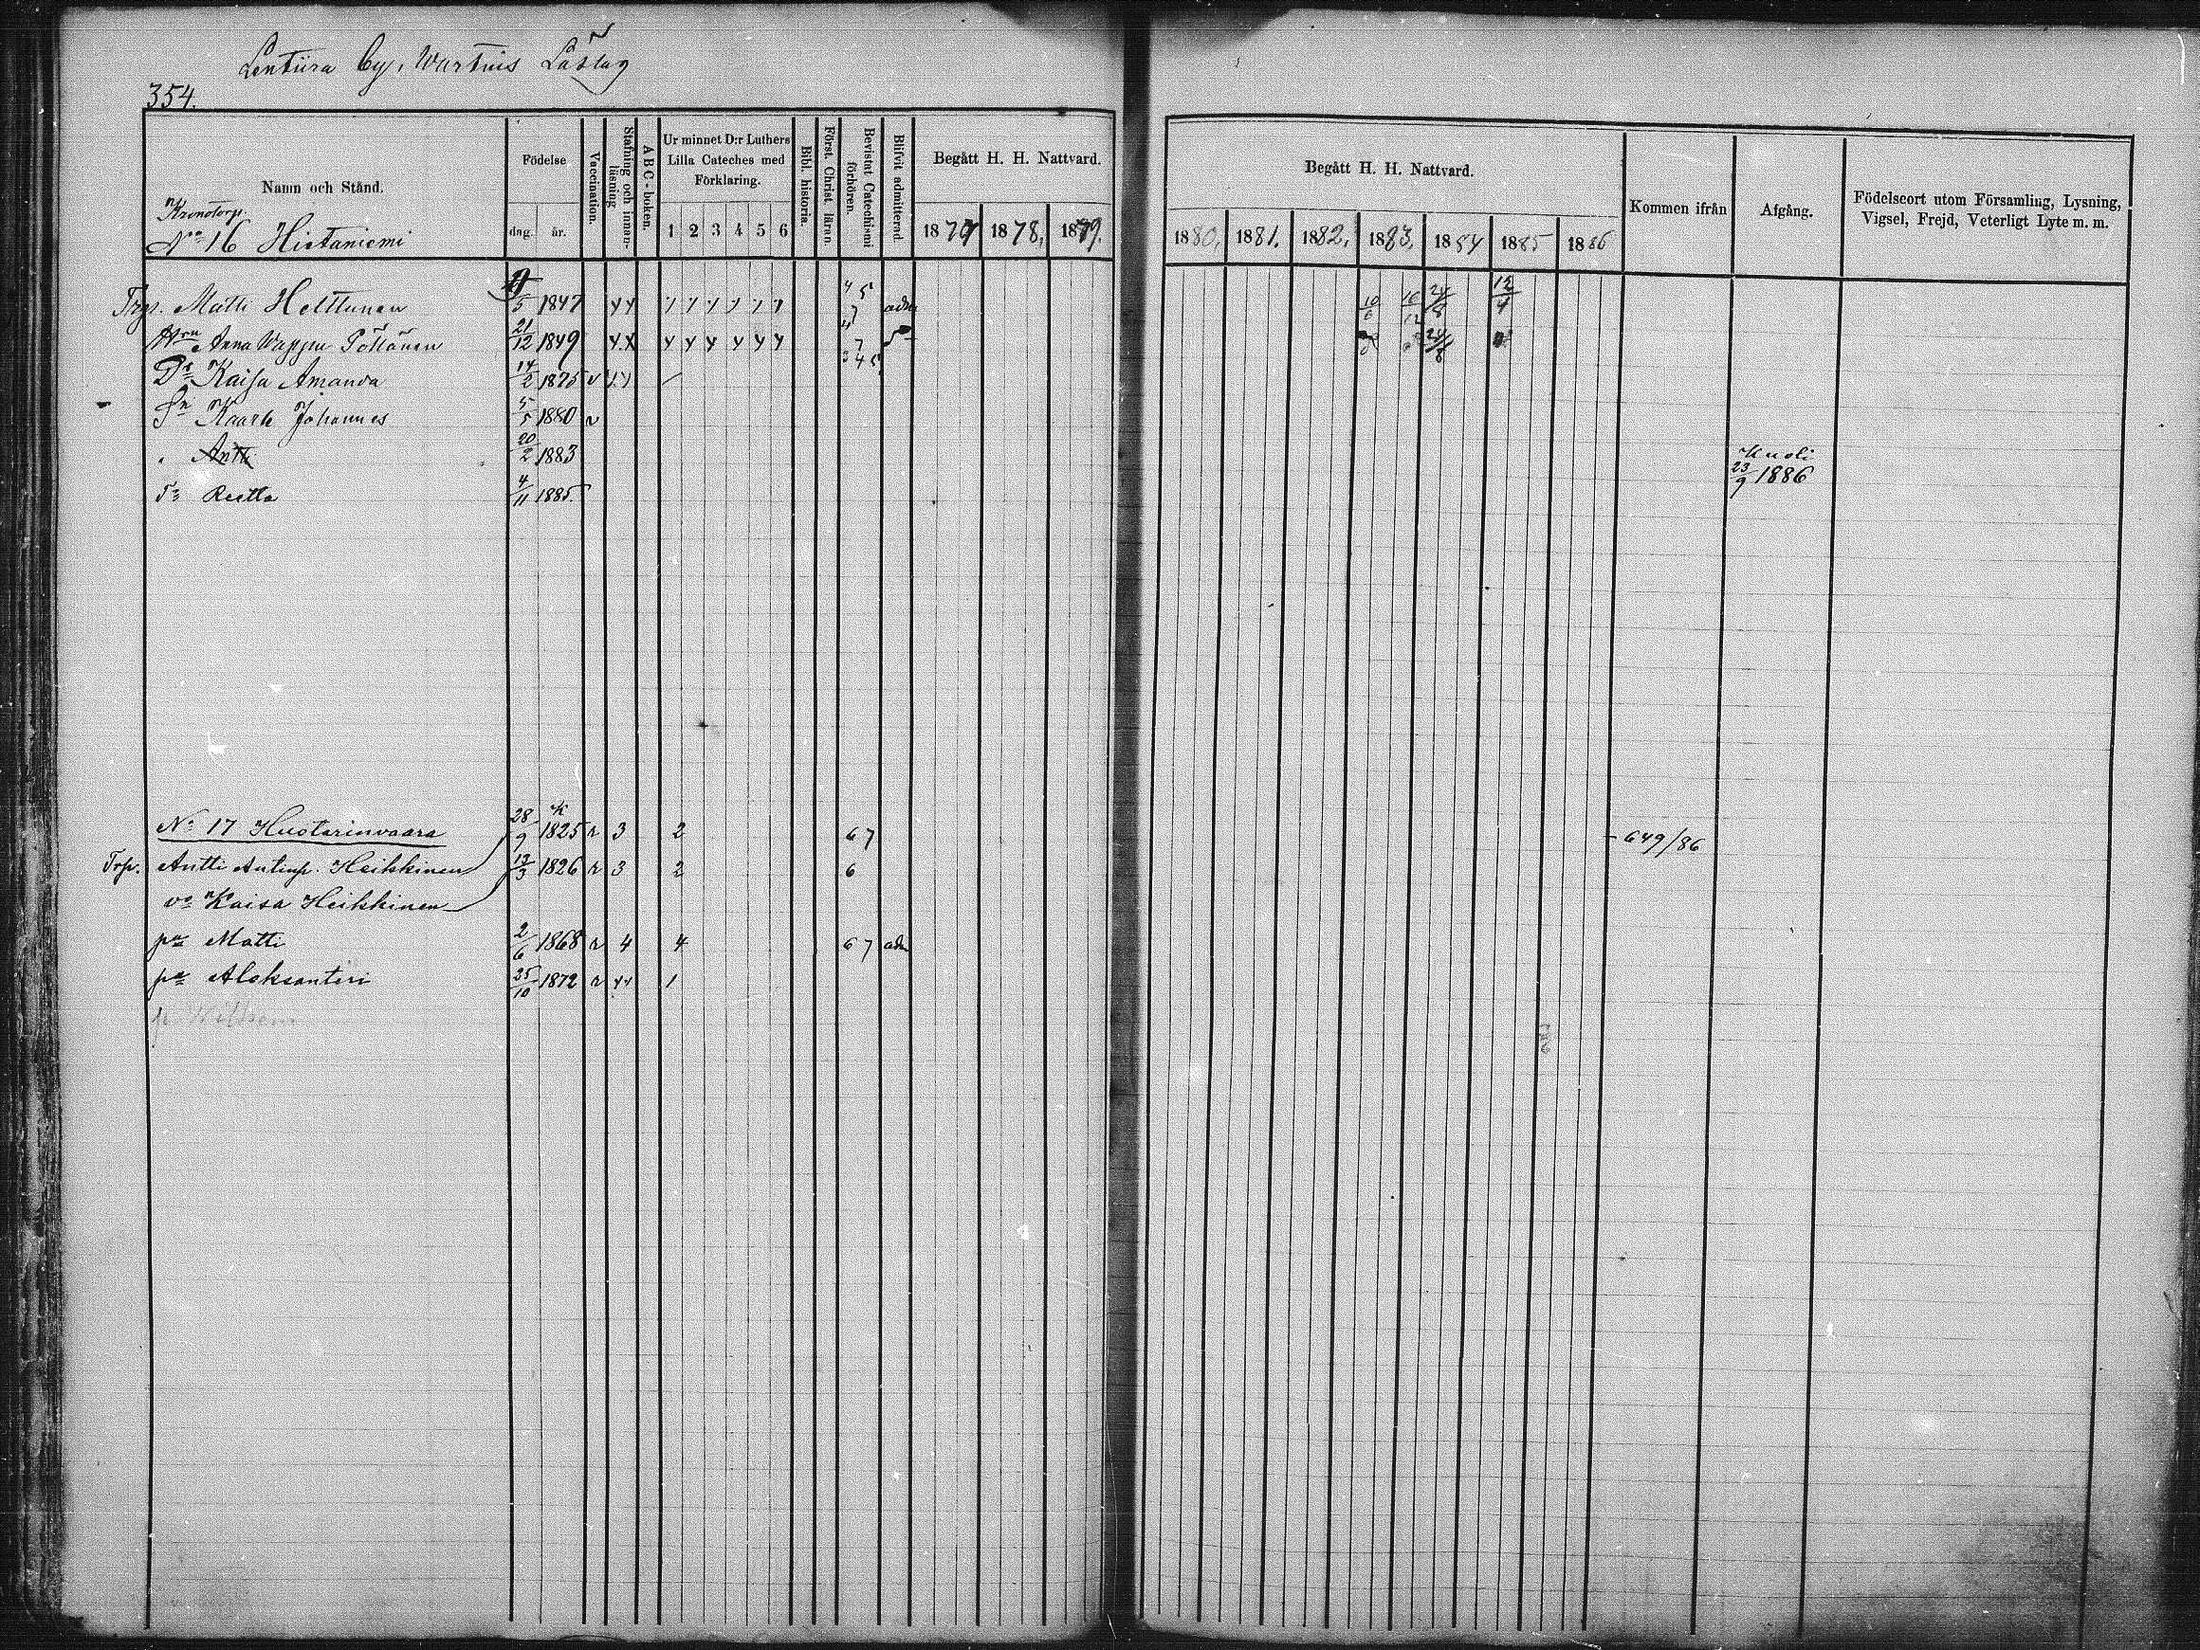 Lentiira by, Wartius Läslag
354.
Namn och Stånd.
Födelse
dag. år.
Vaccination.
Stafning och innanläsning
ABC-boken.
Ur minnet D:r Luthers Lilla Cateches med Förklaring.
1 2 3 4 5 6
Bibl. historia.
Först. Christ. läran.
Bevistat Catechismi förhören.
Blifvit admitterad
Begått H. H. Nattvard.
1877 1878, 1879.
Begått H. H. Nattvard.
1880, 1881. 1882, 1883, 1884 1885 1886
Kommen ifrån
Afgång.
Födelseort utom Församling, Lysning, Vigsel, Frejd, Veterligt Lyte m. m.
Kronotorp.
No 16 Hietaniemi
Matti Helttunen 5 1847 adm 10/6 16/12 24/8 12/4
Hru Anna Wappu 21/12 1849 24/8
Dr Kaisa Amanda 14/2 1875 v
Sn Kaarle Johannes 5/5 1880 v
Antti 20/2 1883 Kuoli 23/9 1886
Tr Reetta 4/11 1885
No 17 Huotarinvaara 28/9 1825 r 3 2 6 7 649/86
Trp. Antti Antinp. Heikkinen 13/3 1826 r 3 2 6
vo Kaisa Heikkinen
pa Matti 2/6 1868 r 4 4 6 7 adm
pa Aleksanteri 25/10 1872 r 1